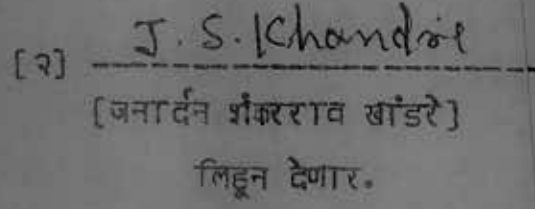 J. S. Khandre
[२]
[जनार्दन शंकरराव खांडरे]
लिहून देणार.